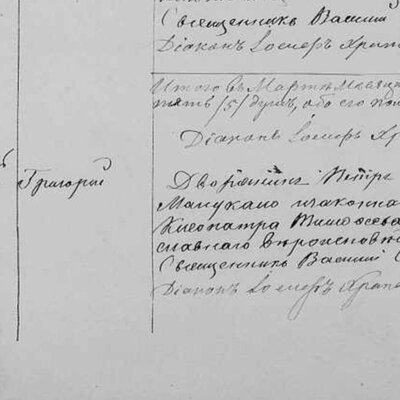 Священникъ Василій
Діаконъ Іосифъ Хрип
Итого въ Мартѣ мѣсяц
пять /5/ душъ, обо его пол
Діаконъ Іосифъ Х
Григорій
Дворянинъ Петръ
законна
Клеопатра Тимофѣева
славнаго вѣроисповѣ
Священникъ Василій
Діаконъ Іосифъ